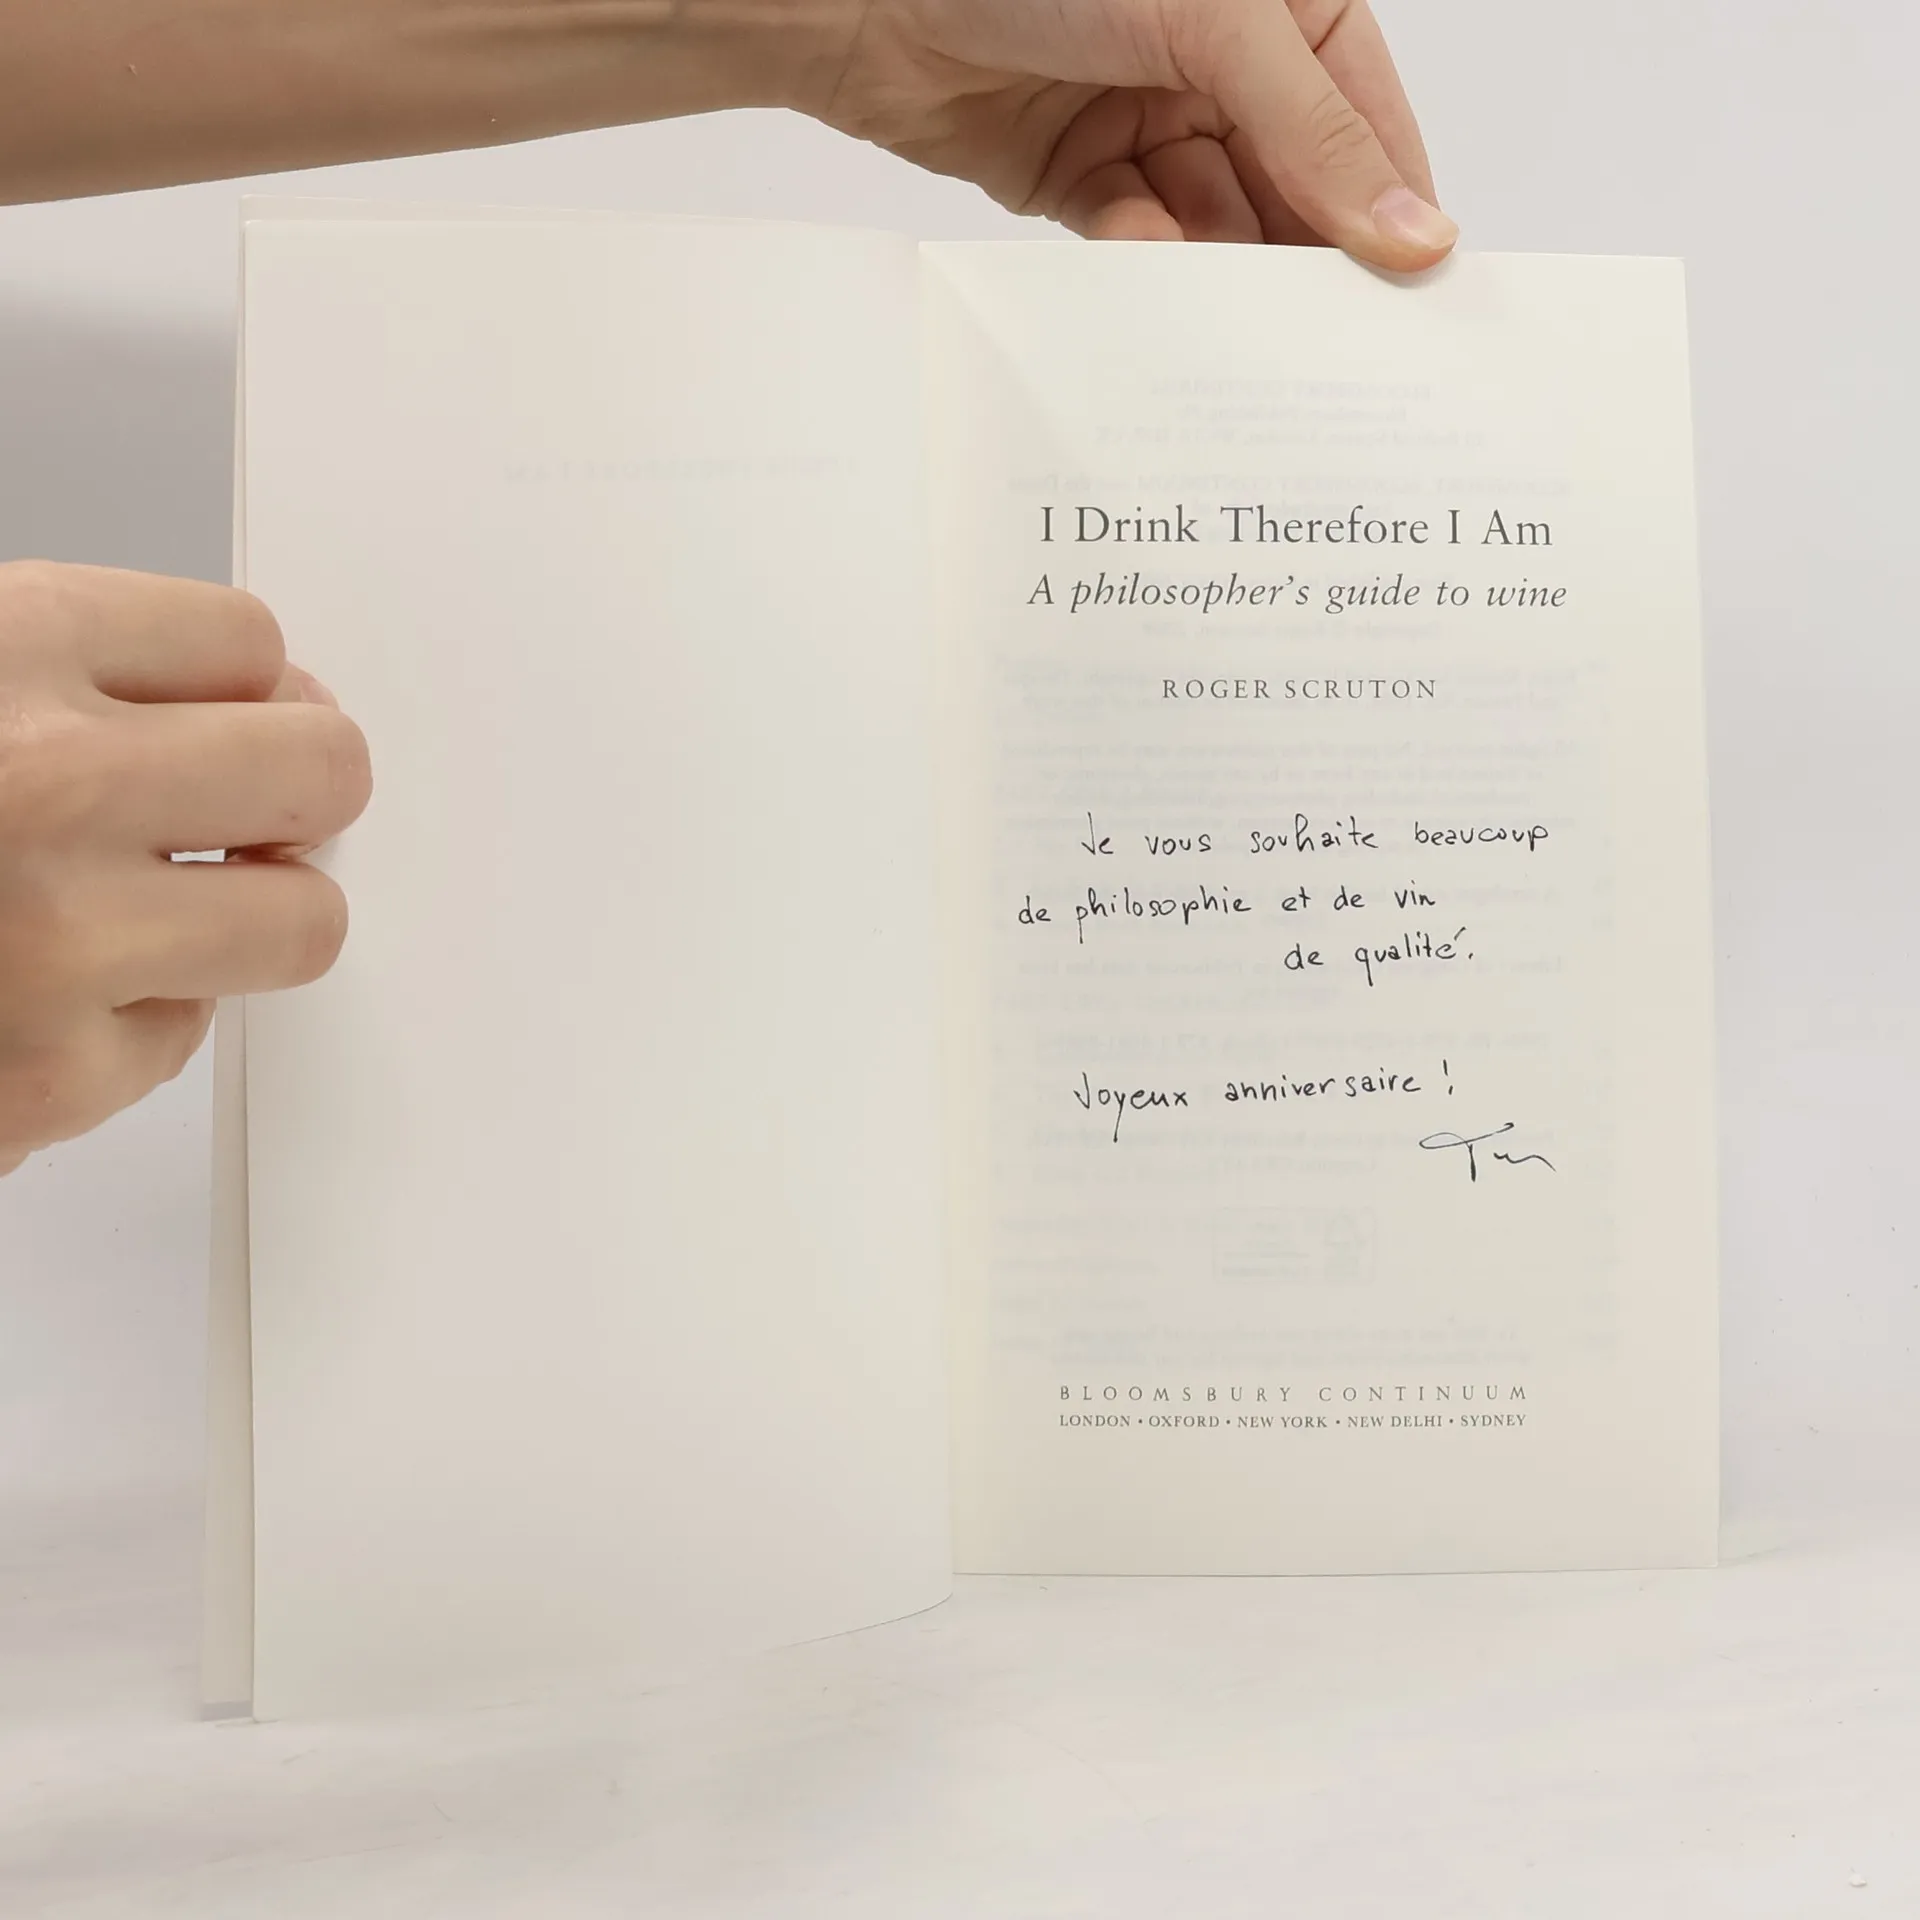 I Drink Therefore I Am
A philosopher's guide to wine
ROGER SCRUTON
Je vous souhaite beaucoup
de philosophie et de vin
de qualité.
Joyeux anniversaire !
BLOOMSBURY CONTINUUM
LONDON • OXFORD • NEW YORK • NEW DELHI • SYDNEY